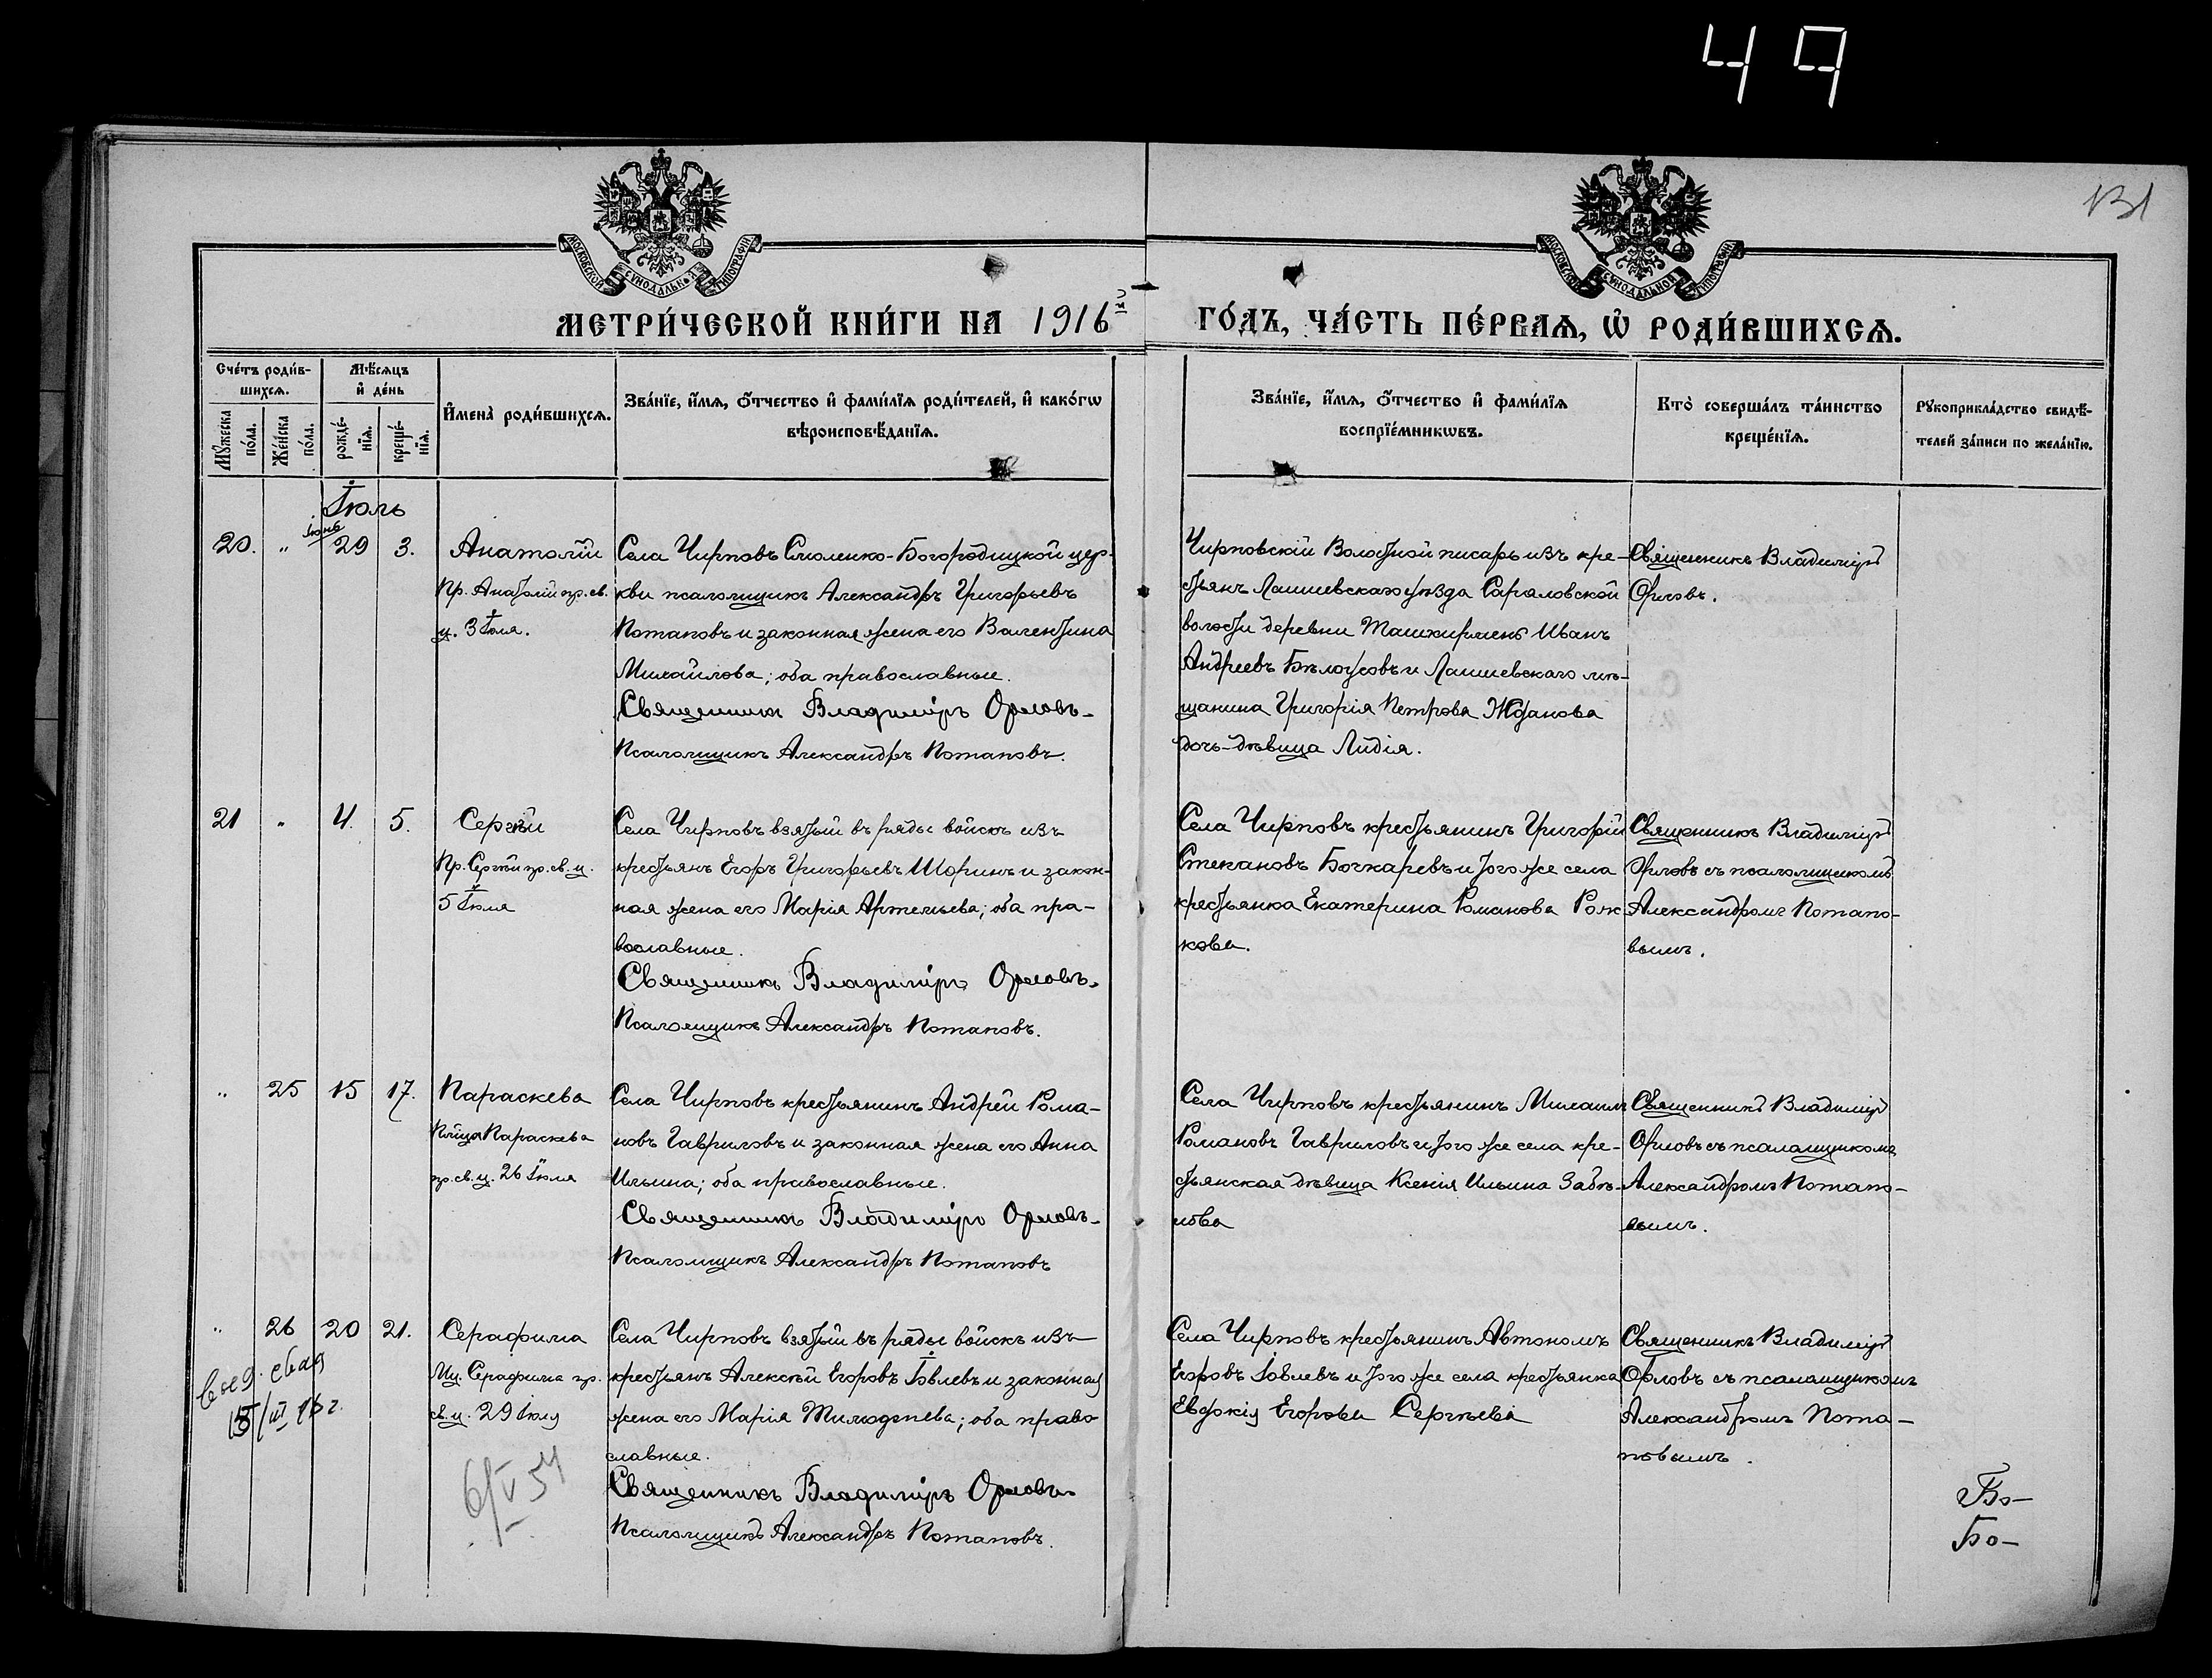 49
131
МОСКОВСКОЙ СѴНОДАЛЬНОЙ ТИПОГРАФІИ
МОСКОВСКОЙ СѴНОДАЛЬНОЙ ТИПОГРАФІИ
МЕТРИ́ЧЕСКОЙ КНИ́ГИ НА 1916й ГО́ДЪ, ЧА́СТЬ ПЕ́РВАѦ, Ѡ РОДИ́ВШИХСѦ.
Сче́тъ роди́в-
шихсѧ.
Мꙋ́жеска
по́ла.
Же́нска
по́ла.
Мѣ́сѧцъ
и де́нь
рожде́-
нїѧ.
креще́-
нїѧ.
Имена̀ роди́вшихсѧ.
Зва́нїе, и́мѧ, ѻ́тчество и фами́лїѧ роди́телей, и како́гѡ
вѣроисповѣ́данїѧ.
Зва́нїе, и́мѧ, ѻ́тчество и фами́лїѧ
воспрїе́мникѡвъ.
Кто̀ соверша́лъ та́инство
креще́нїѧ.
Рꙋкоприкла́дство свидѣ́-
телей за́писи по жела́нїю.
Іюль
20. " Іюнь 29 3.
Анатолій
Пр. Анатолій пр. св.
ц. 3 Іюля.
Села Чирповъ Смоленко-Богородицкой цер-
кви псаломщикъ Александръ Григорьевъ
Потаповъ и законная жена его Валентина
Михайлова; оба православные.
Священникъ Владиміръ Орловъ.
Псаломщикъ Александръ Потаповъ.
Чирповскій Волостной писарь изъ кре-
стьянъ Лаишевскаго уѣзда Сараловской
волости деревни Ташкирмень Иванъ
Андреевъ Бѣлоусовъ и Лаишевскаго мѣ-
щанина Григорія Петрова Жданова
дочь-дѣвица Лидія.
Священникъ Владиміръ
Орловъ.
21 " 4. 5.
Сергѣй
Пр. Сергѣй пр. св. ц.
5 Іюля
Села Чирповъ взятый въ ряды войскъ изъ
крестьянъ Егоръ Григорьевъ Шоринъ и закон-
ная жена его Марія Артемьева; оба пра-
вославные.
Священникъ Владиміръ Орловъ.
Псаломщикъ Александръ Потаповъ.
Села Чирповъ крестьянинъ Григорій
Степановъ Бочкаревъ и того же села
крестьянка Екатерина Романова Рож-
кова.
Священникъ Владиміръ
Орловъ съ псаломщикомъ
Александромъ Потапо-
вымъ.
" 25 15 17.
Параскева
Пм̃ца Параскева
пр. св. ц. 26 Іюля
Села Чирповъ крестьянинъ Андрей Рома-
новъ Гавриловъ и законная жена его Анна
Ильина; оба православные.
Священникъ Владиміръ Орловъ.
Псаломщикъ Александръ Потаповъ
Села Чирповъ крестьянинъ Михаилъ
Романовъ Гавриловъ и того же села кре-
стьянская дѣвица Ксенія Ильина
Священникъ Владиміръ
Орловъ съ псаломщикомъ
Александромъ Потапо-
вымъ.
" 26 20 21.
Серафима
Мц. Серафима пр.
св. ц. 29 Іюля
Села Чирповъ взятый въ ряды войскъ изъ
крестьянъ Алексѣй Егоровъ Іовлевъ и законная
жена его Марія Тимофѣева; оба право
славные.
Священникъ Владиміръ Орловъ.
Псаломщикъ Александръ Потаповъ.
Села Чирповъ крестьянинъ Автономъ
Егоровъ Іовлевъ и того же села крестьянка
Евдокія Егорова Сергѣева
Священникъ Владиміръ
Орловъ съ псаломщикомъ
Александромъ Пота-
повымъ.
6/V 54
Бо-
Бо-